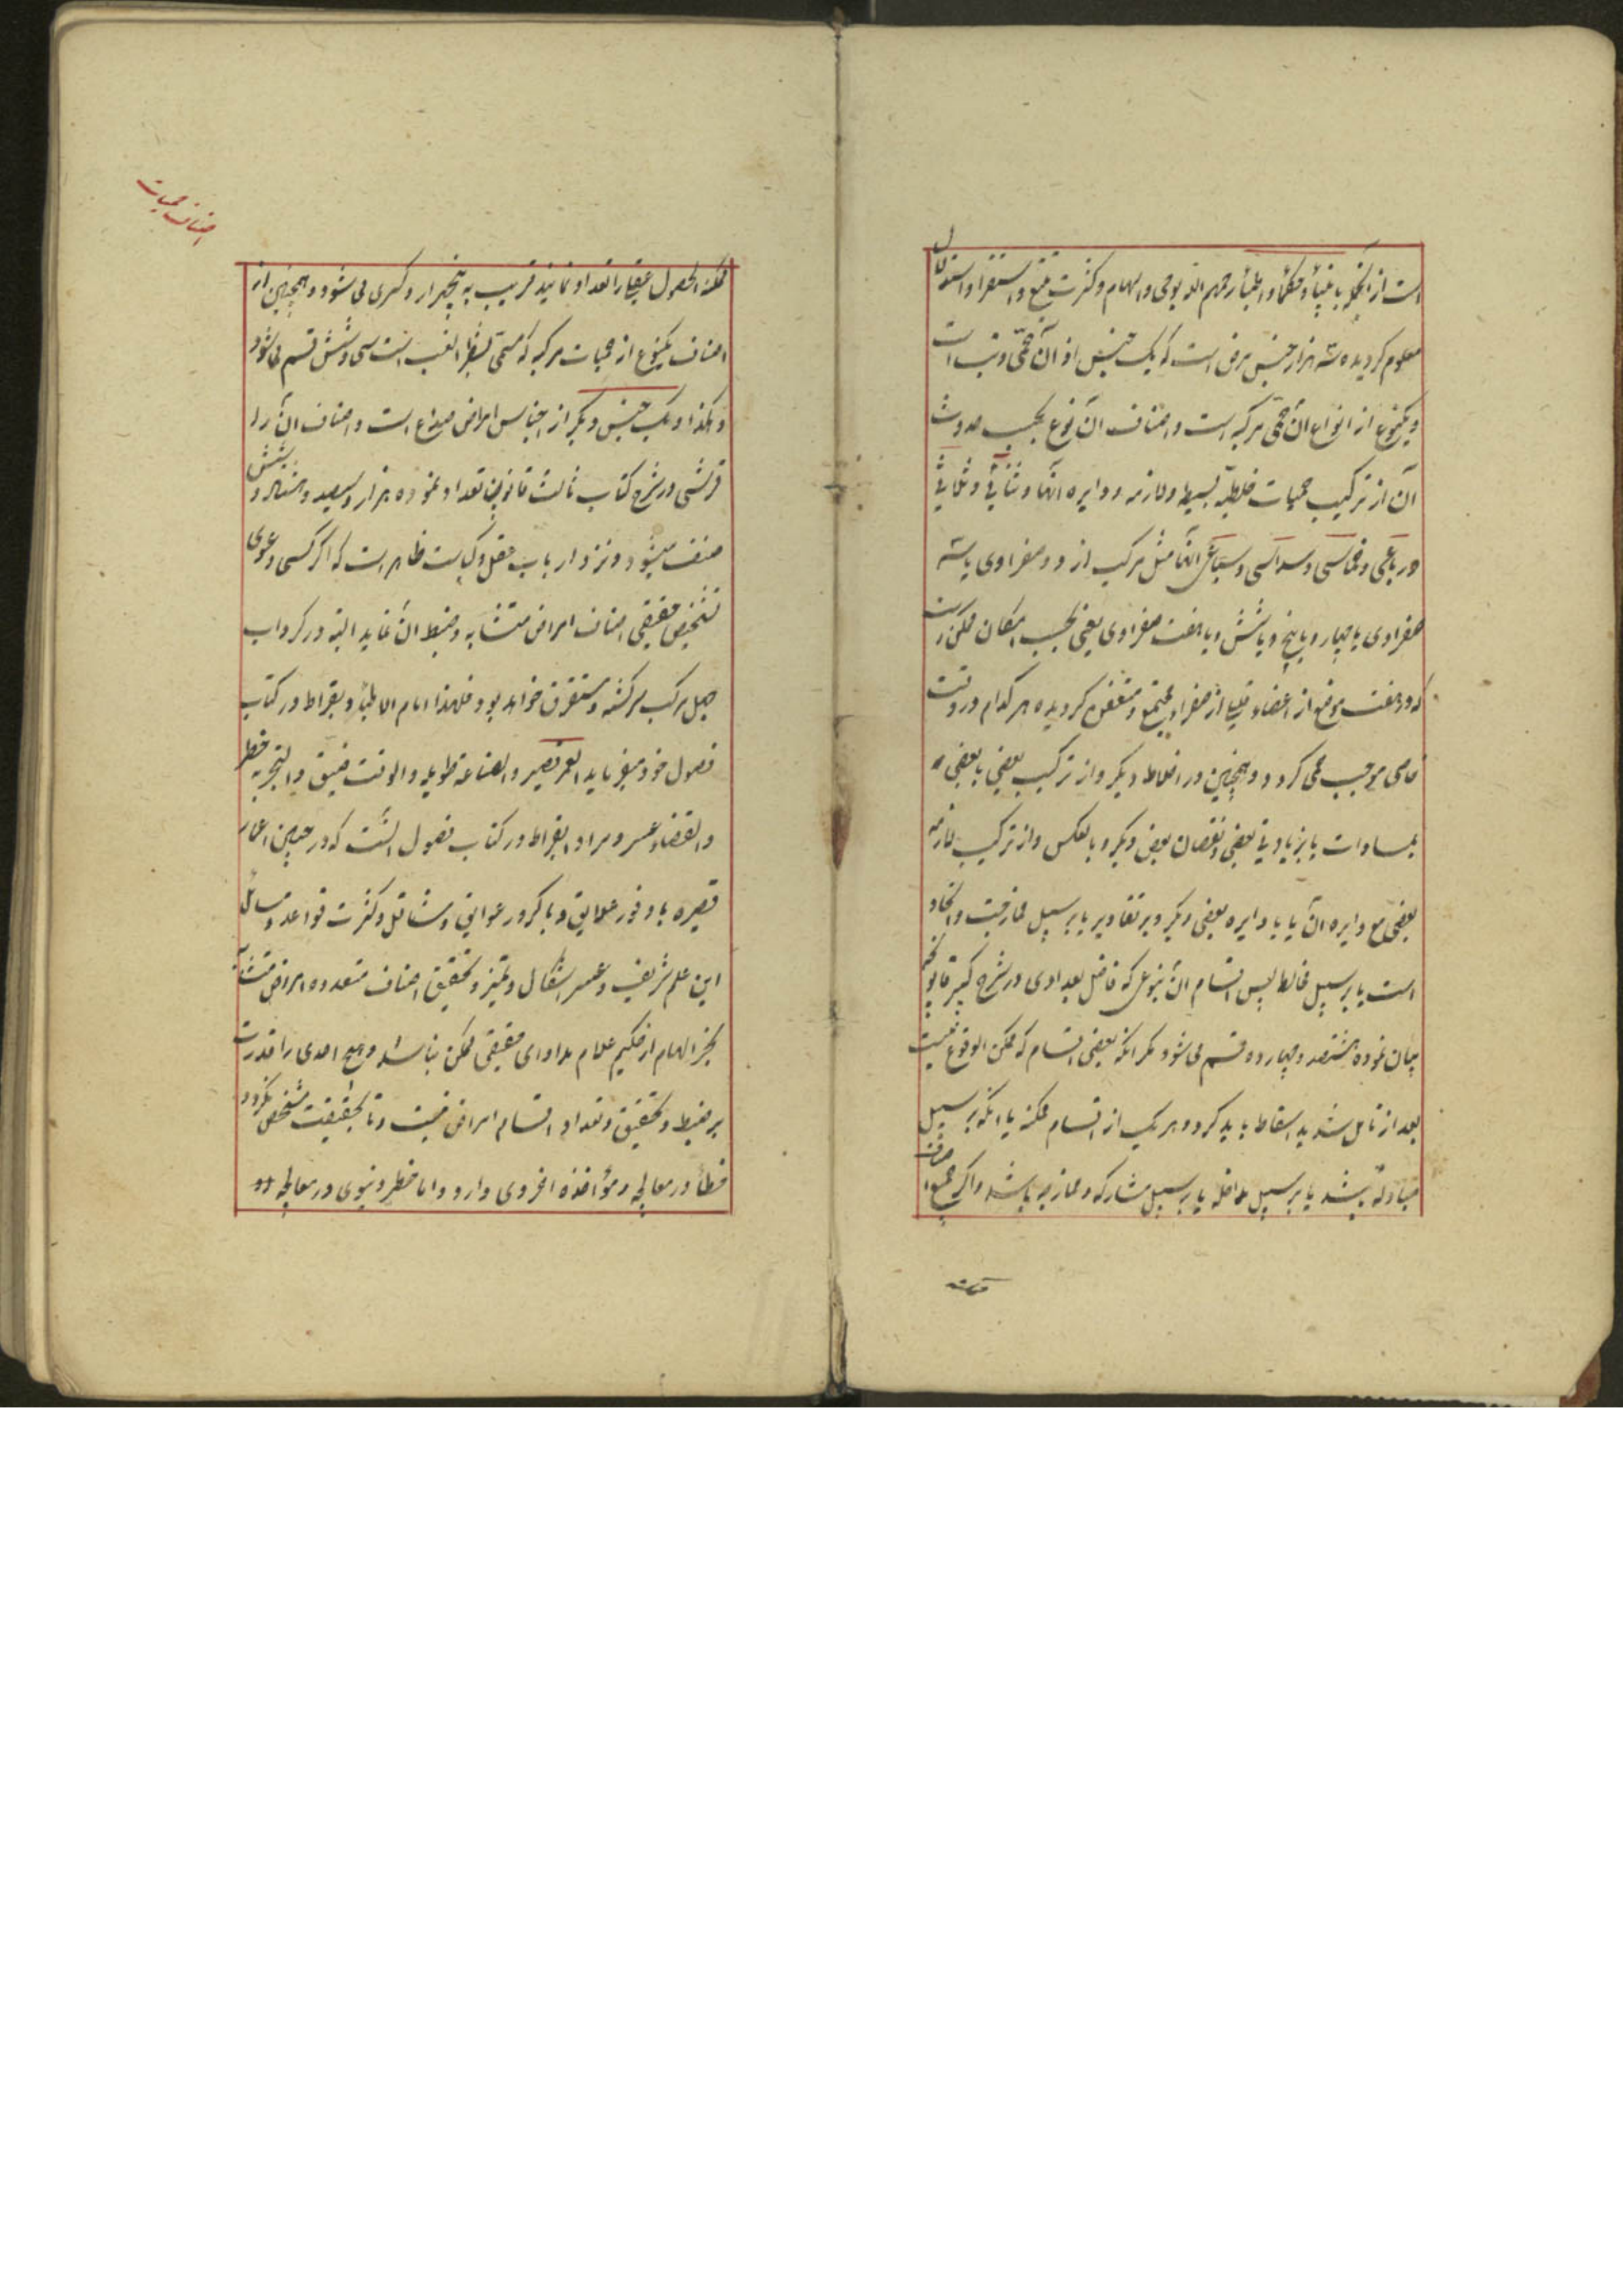 است از آنجمله بانبیأ و حکمأ و اطبأ رحمهم الله بوحی و الهام و کثرت تتبع و استقرا و استدلال
معلوم کردیده سه هزار جنس مرض است که یک جنس از آن حمّی و تب است
و یکنوع از انواع آن حمّی مرکبه است و اصناف آن نوع بحسب حدوث
آن از ترکیب حمیات خلطیه بسیط و لازمه و دایره آنها و ثنائی و ثلاثی
و رباعی و خماسی و سداسی و سباعی آنها مثل مرکب از دو صفراوی یا سه
صفراوی یا چهار و یا پنج و یا شش و یا هفت صفراوی یعنی بحسب امکان ممکن است
که در هفت موضع از اعضاء قلیلی از صفرا و مجتمع و متعفن کردیده هر کدام در وقت
خاصی موجب حمی کردد و همچنین در اخلاط دیکر و از ترکیب بعضی با بعضی
بمساوات یا بزیادتی بعضی و نقصان بعض دیکر و بالعکس و از ترکیب لازمه
بعضی مع دایره آن یا با دایره بعضی دیکر و بر تقادیر یا بر سبیل مفارقت و اتحاد
است یا بر سبیل مخالط پس اقسام آن بنوعی که فاضل بغدادی در شرح کبیر قانونچه
بیان نموده هشتصد و چهارده قسم می شود مکر آنکه بعضی اقسام که ممکن الوقوع نیست
بعد از تامل شدید اسقاط باید کرد و هر یک از اقسام ممکنه یا آنکه بر سبیل
مبادله باشد یا بر سبیل مداخله یا بر سبیل مشارکه و ممازجه باشد و اکر جمیع
اصناف حمیات
ممکنة الحصول عقلی را تعداد نمایند قریب به پنجهزار و کسری می شود و همچنین از
اصناف یکنوع از حمیات مرکبه که مسمی بشطر الغب است سی و شش قسم می شود
و هکذا و یک جنس دیکر از اجناس امراض صداع است و اصناف آن را
قرشی در شرح کتاب ثالث قانون تعداد نموده هزار و سیصد و هشتاد و شش
صنف میشود و نزد ارباب عقل و کیاست ظاهر است که اکر کسی دعوی
تشخیص حقیقی اصناف امراض متشابه و ضبط آن نماید البته در کرداب
جهل مرکب سرکشته و مستغرق خواهد بود فلهذا امام الاطبأ و بقراط در کتاب
فصول خود میفرماید العمر قصیر و الصناعة طویله و الوقت ضیق و التجربه خطر
و القضاء عسر و مراد بقراط در کتاب فصول اینست که در چنین اعمار
قصیره با وفور علایق و با کرور عوایق و مشاغل و کثرت قواعد و مسائل
این علم شریف و عسر اشکال و تمیز و تحقیق اصناف متعدده امراض متشابه
بجز الهام از حکیم علام مداوای حقیقی ممکن نباشد و هیچ احدی را قدرت
بر ضبط و تحقیق و تعداد اقسام امراض نیست و تا بحقیقت مشخص نکردد
خطأ در معالجه و مؤاخذه اخروی دارد و اما خطر دنیوی در معالجه